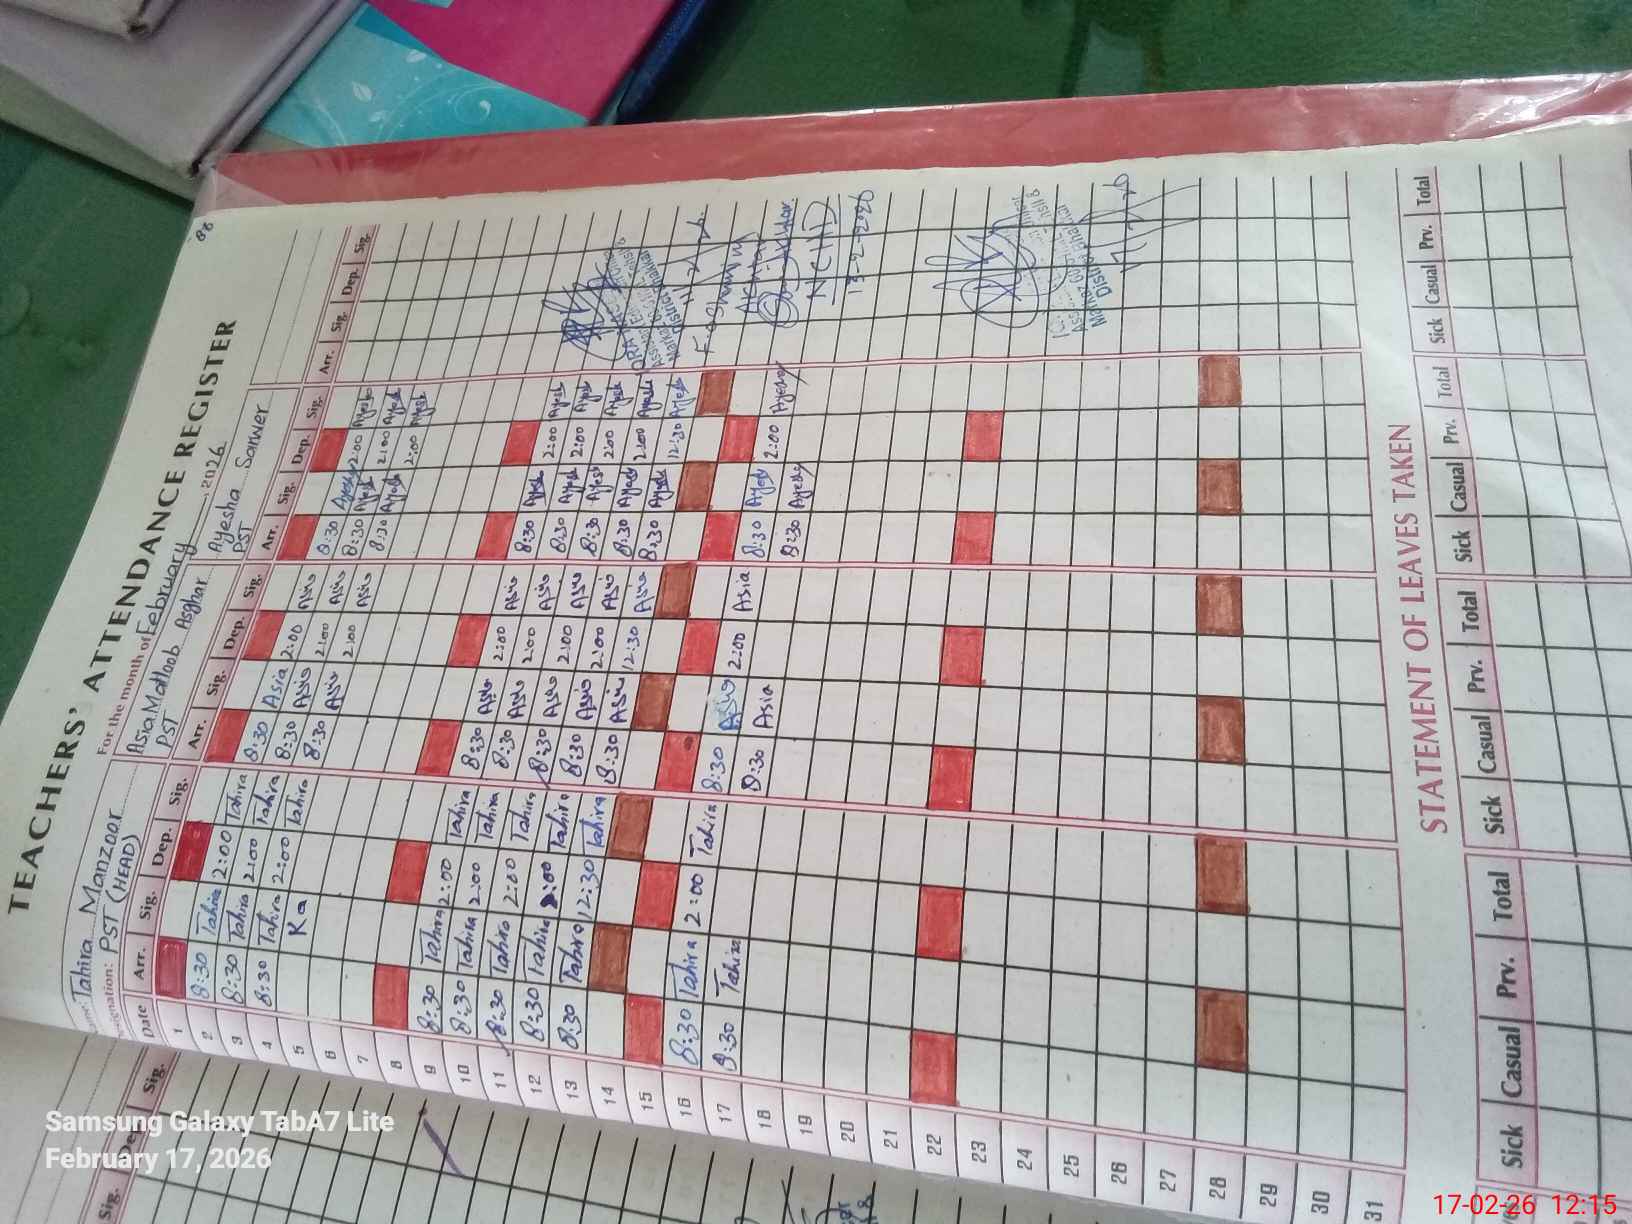 TEACHERS' ATTENDANCE REGISTER
For the month of February, 2026
Tahira Manzoor
PST (HEAD)
Asia Matloob Asghar
PST
Ayesha Sarwer
PST
Date Arr. Sig. Dep. Sig. Arr. Sig. Dep. Sig. Arr. Sig. Dep. Sig. Arr. Sig. Dep. Sig.
1
2 8:30 Tahira 2:00 Tahira 8:30 Asia 2:00 Asia 8:30 Ayesh 2:00 Ayesh
3 8:30 Tahira 2:00 Tahira 8:30 Asia 2:00 Asia 8:30 Ayesh 2:00 Ayesh
4 8:30 Tahira 2:00 Tahira 8:30 Asia 2:00 Asia 8:30 Ayesh 2:00 Ayesh
5 Ka
6
7
8
9 8:30 Tahira 2:00 Tahira 8:30 Asia 2:00 Asia 8:30 Ayesh 2:00 Ayesh
10 8:30 Tahira 2:00 Tahira 8:30 Asia 2:00 Asia 8:30 Ayesh 2:00 Ayesh
11 8:30 Tahira 2:00 Tahira 8:30 Asia 2:00 Asia 8:30 Ayesh 2:00 Ayesh
12 8:30 Tahira 2:00 Tahira 8:30 Asia 2:00 Asia 8:30 Ayesh 2:00 Ayesh
13 8:30 Tahira 12:30 Tahira 8:30 Asia 12:30 Asia 8:30 Ayesh 12:30 Ayesh
14
15
16 8:30 Tahira 2:00 Tahira 8:30 Asia 2:00 Asia 8:30 Ayesh 2:00 Ayesh
17 8:30 Tahira 8:30 Asia 8:30 Ayesh
18
19
20
21
22
23
24
25
26
27
28
29
30
31
NCHD
13-2-2026
STATEMENT OF LEAVES TAKEN
Sick Casual Prv. Total Sick Casual Prv. Total Sick Casual Prv. Total Sick Casual Prv. Total
Samsung Galaxy TabA7 Lite
February 17, 2026
17-02-26 12:15